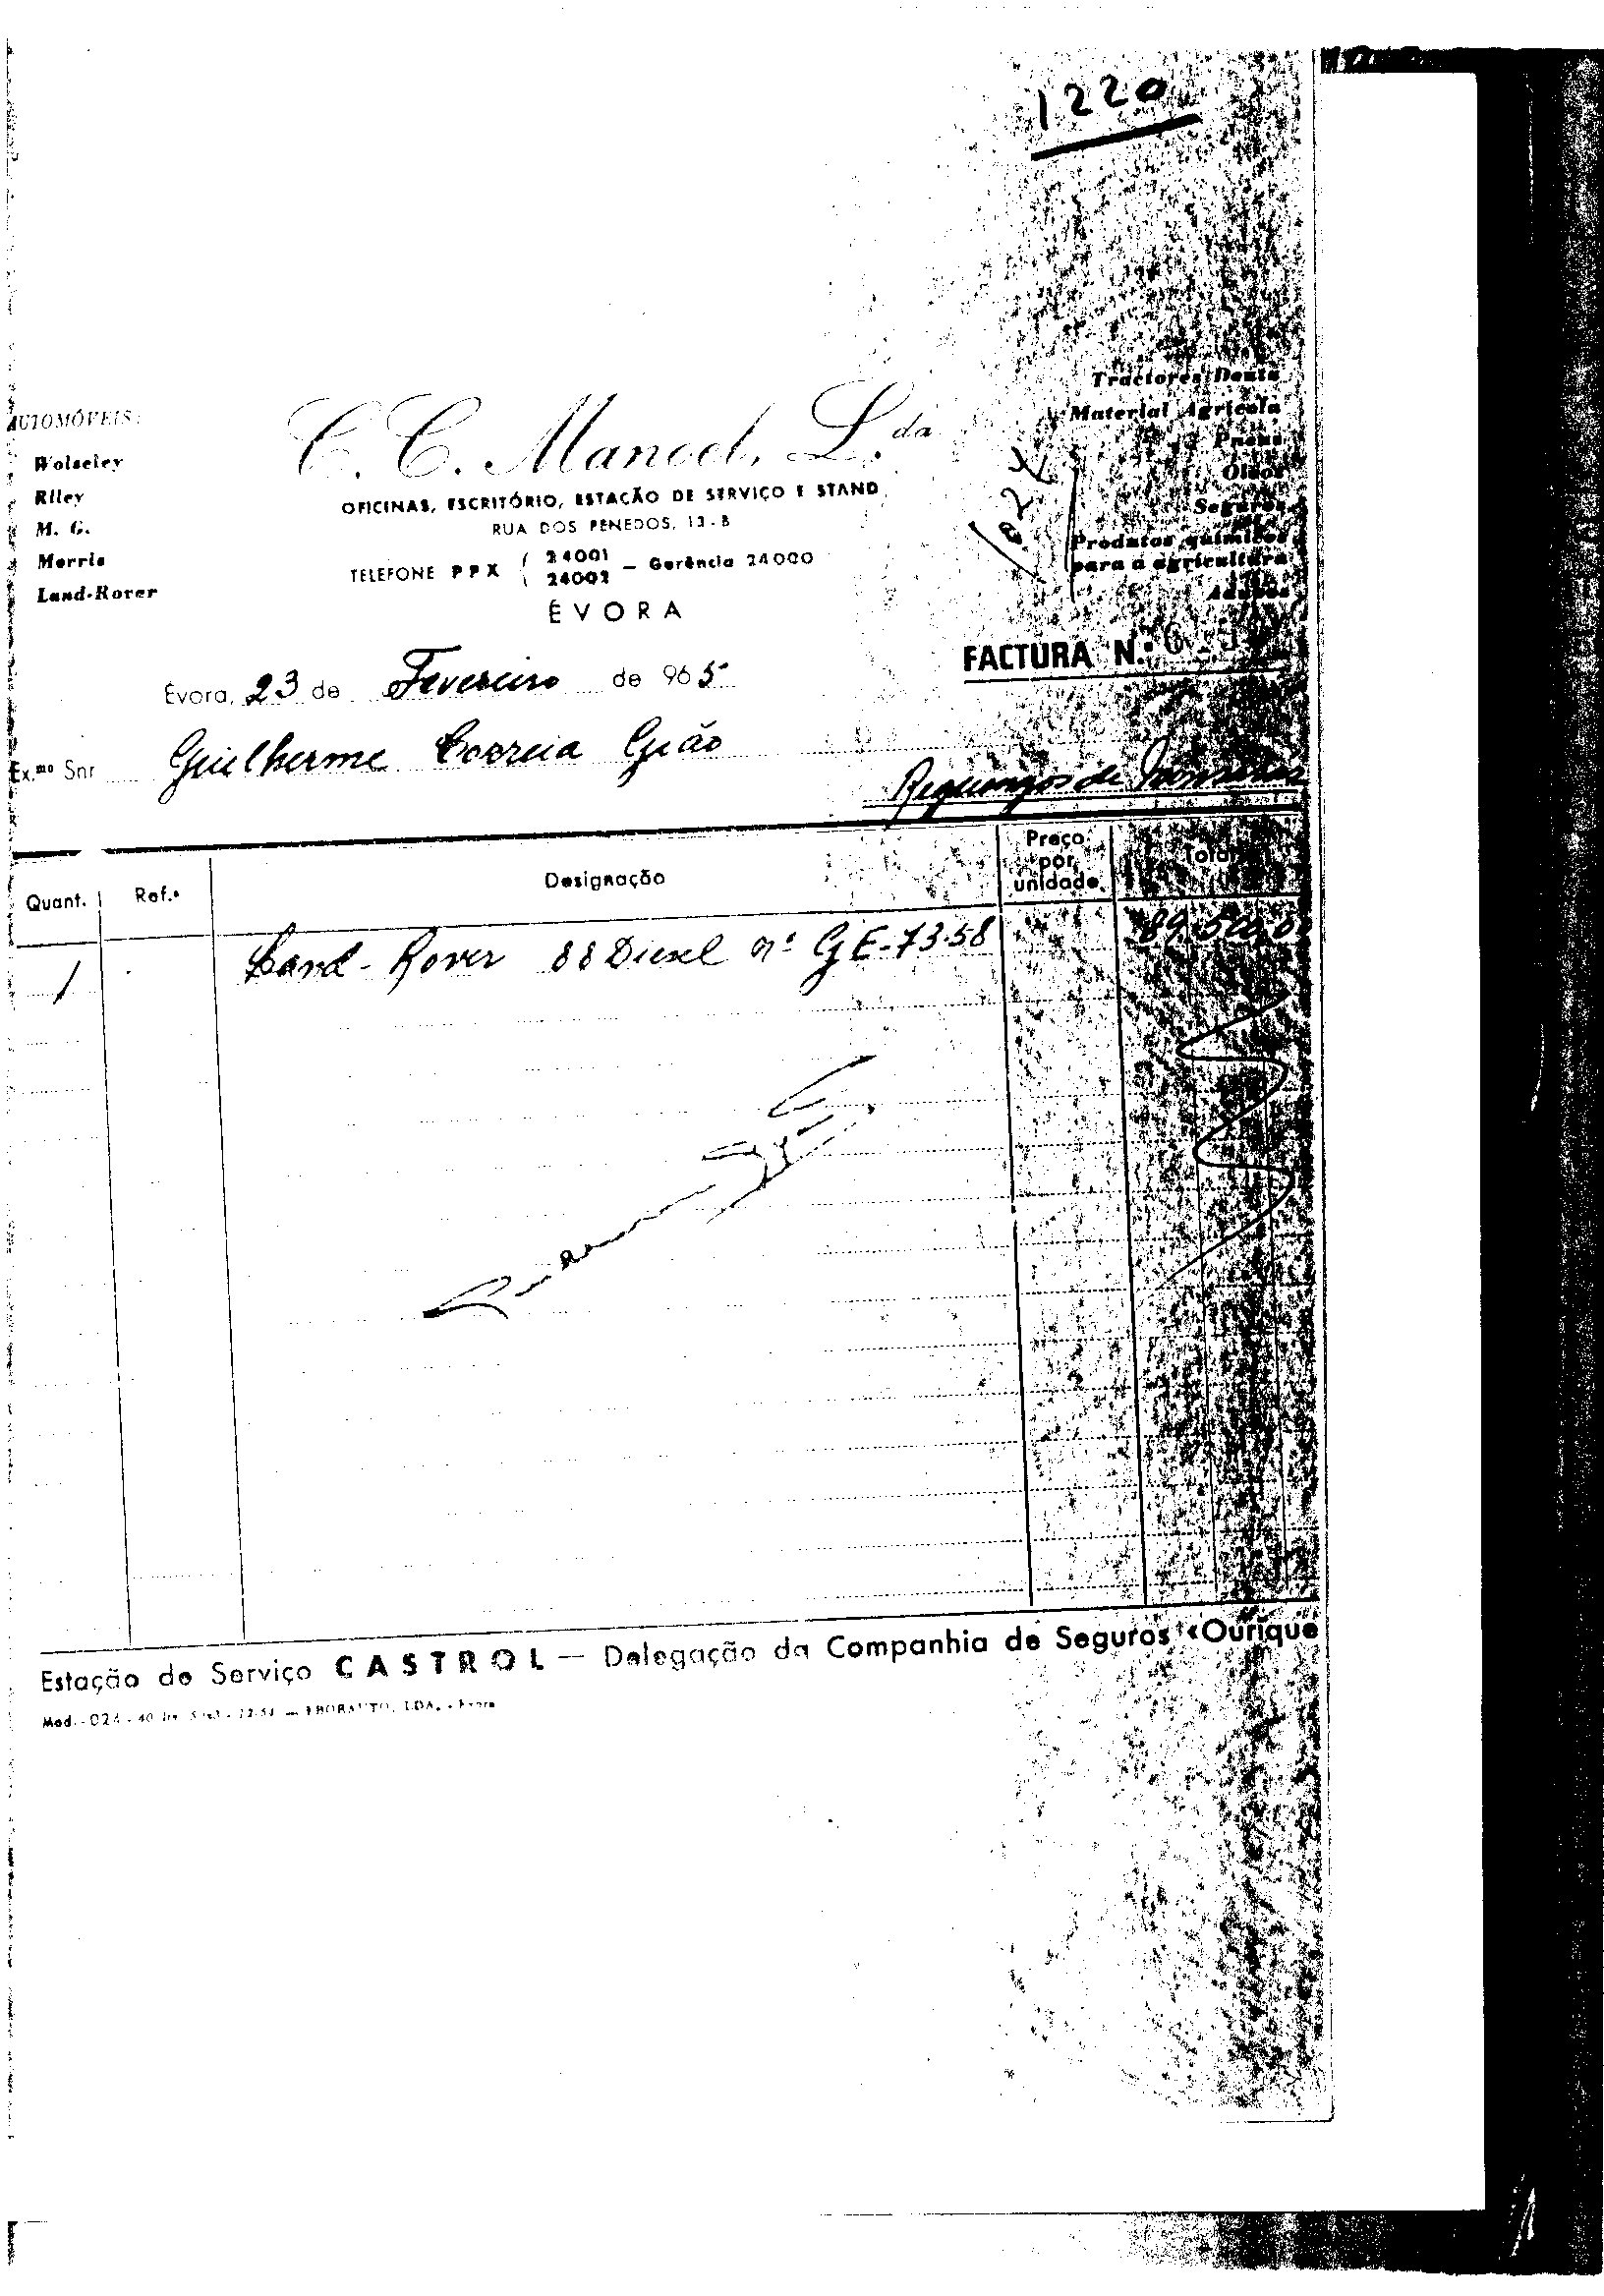 1220
AUTOMÓVEIS:
Wolseley
Riley
M. G.
Morris
Land-Rover
C. C. Manoel, L.da
OFICINAS, ESCRITÓRIO, ESTAÇÃO DE SERVIÇO E STAND
RUA DOS PENEDOS, 13-B
TELEFONE PPX ( 24001 24002 — Gerência 24000
ÉVORA
Tractores Deutz
Material Agrícola
Pneus
Óleos
Seguros
Produtos químicos
para a agricultura
Adubos
FACTURA N.º
Évora, 23 de Fevereiro de 965
Ex.mo Snr Guilherme Correia Gião
Reguengos de Monsaraz
Quant. Ref.ª Designação Preço por unidade Total
1 Land-Rover 88 Diesel nº GE-73-58 89.500,0
Estação de Serviço CASTROL — Delegação da Companhia de Seguros «Ourique
Mod. - 024 - EBORAUTO, LDA. - Évora